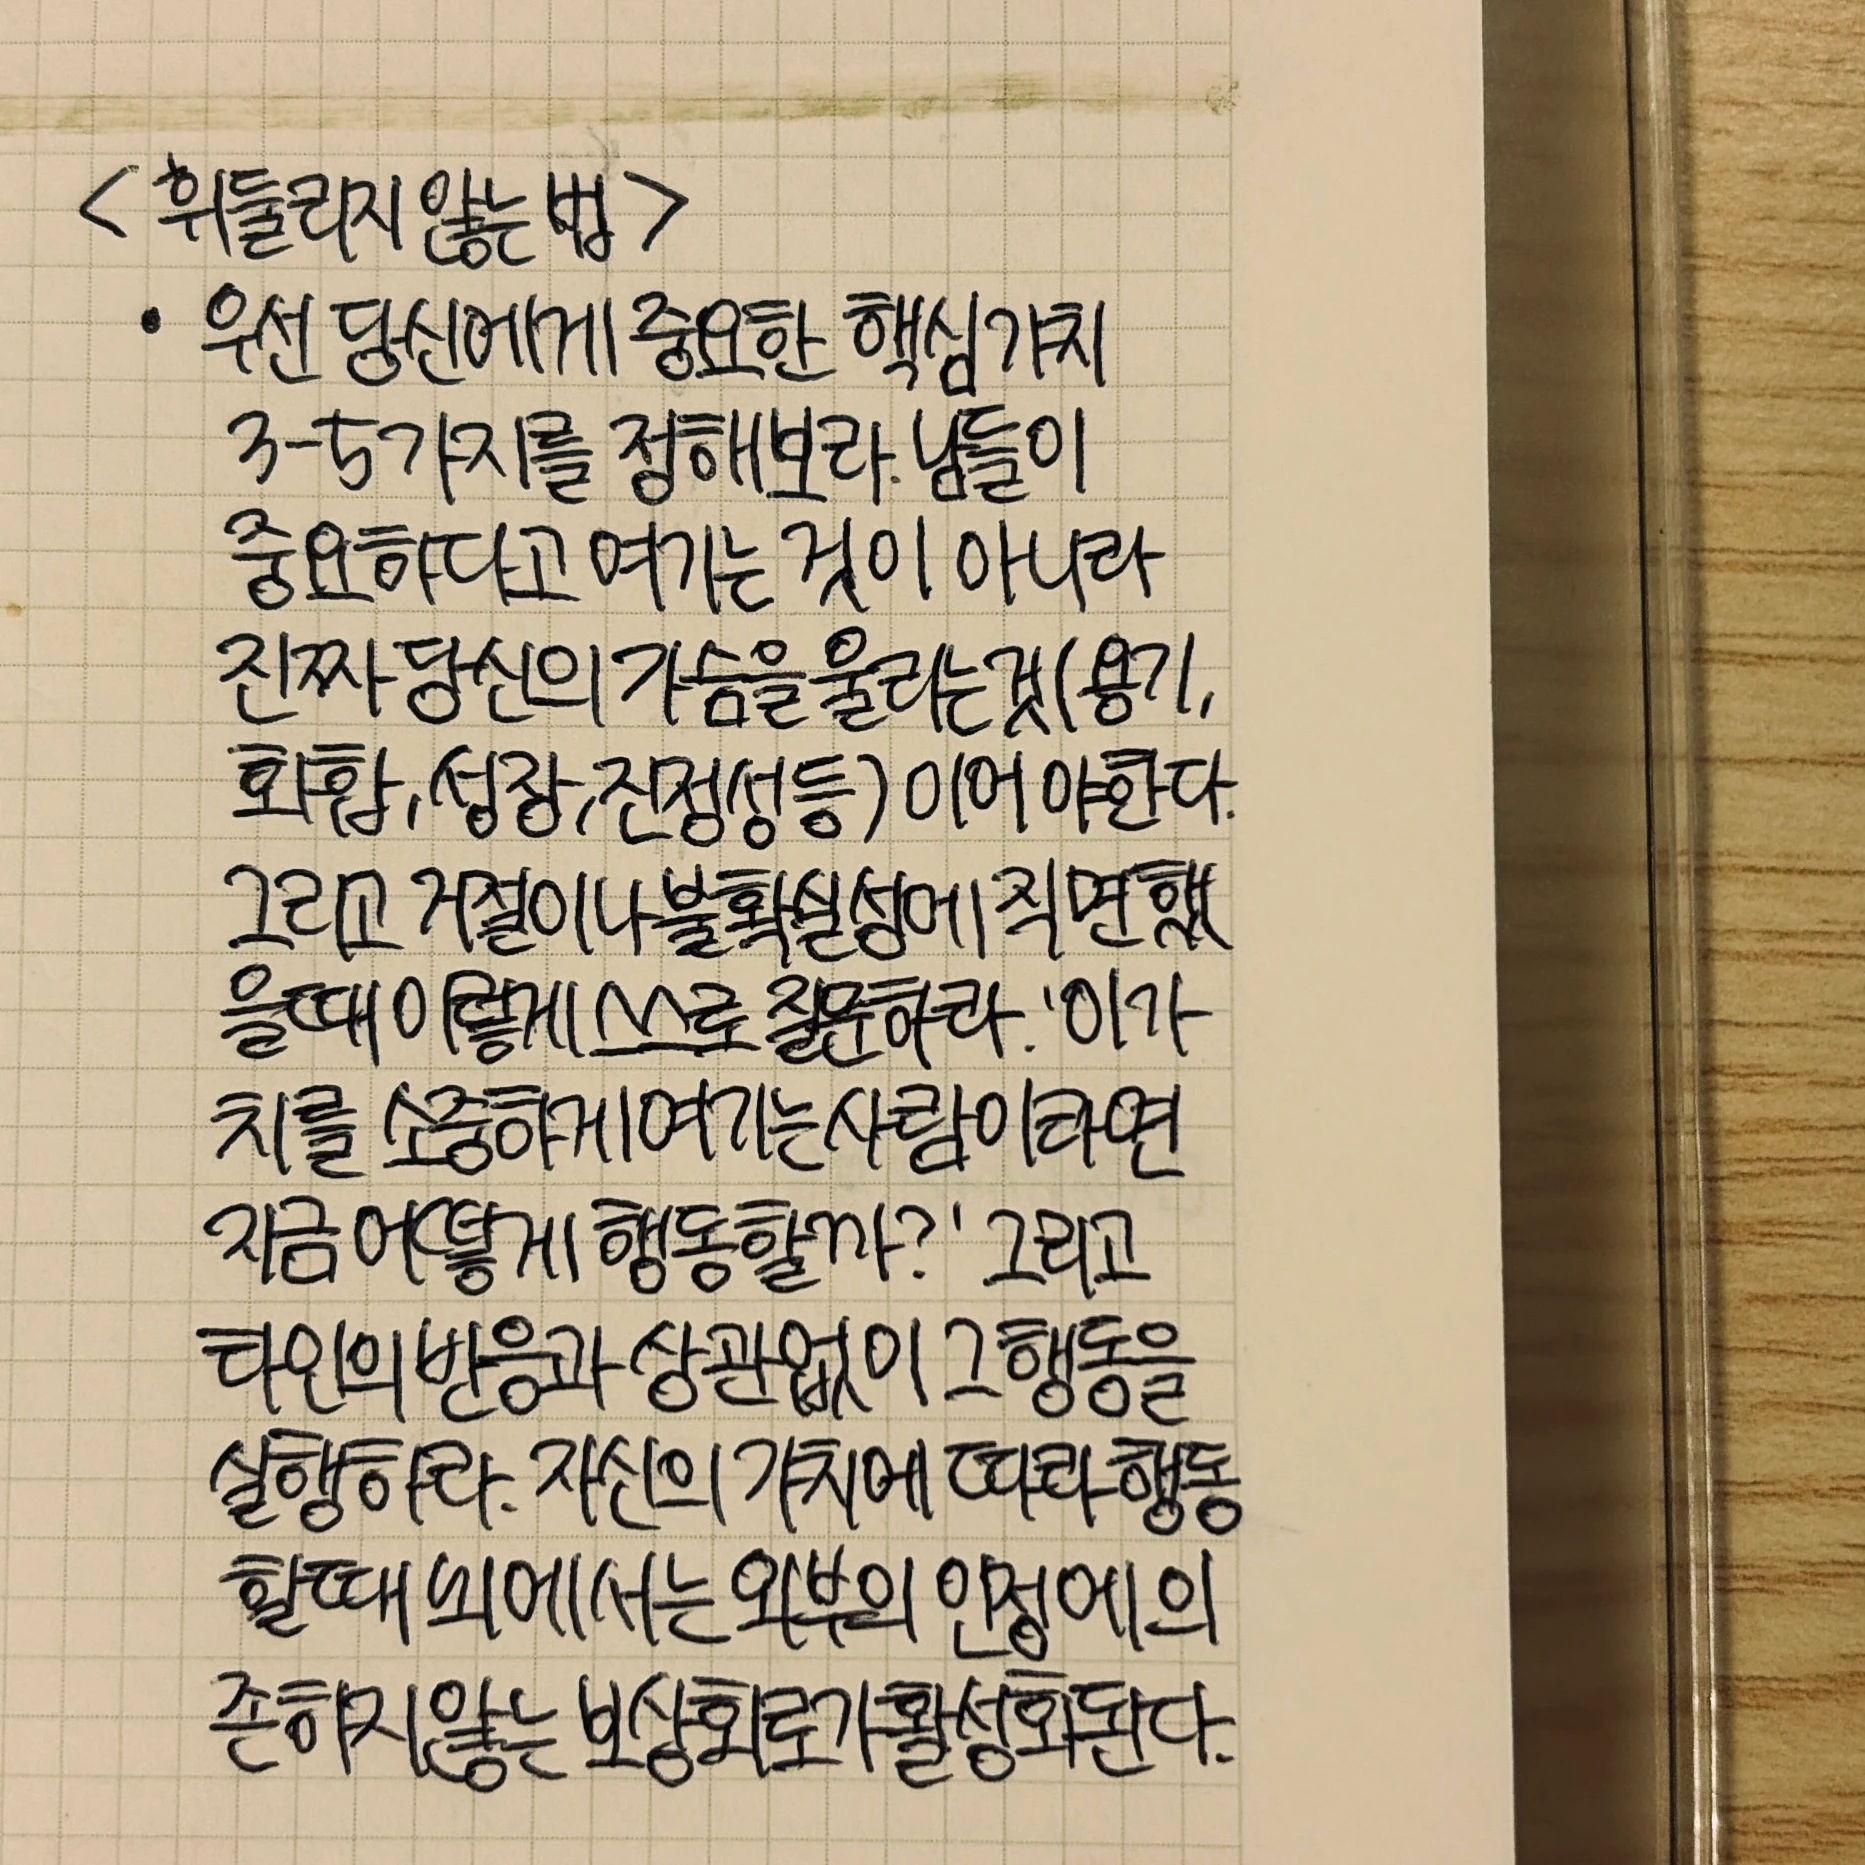 <휘둘리지 않는 법>
• 우선 당신에게 중요한 핵심가치
3-5가지를 정해보라. 남들이
중요하다고 여기는 것이 아니라
진짜 당신의 가슴을 울리는것(용기,
화합, 성장, 진정성 등)이어야한다.
그리고 거절이나 불확실성에 직면했
을때 이렇게 스스로 질문하라. '이가
치를 소중하게 여기는 사람이라면
지금 어떻게 행동할까?' 그리고
타인의 반응과 상관없이 그 행동을
실행하라. 자신의 가치에 따라 행동
할때 뇌에서는 외부의 인정에 의
존하지 않는 보상회로가 활성화된다.